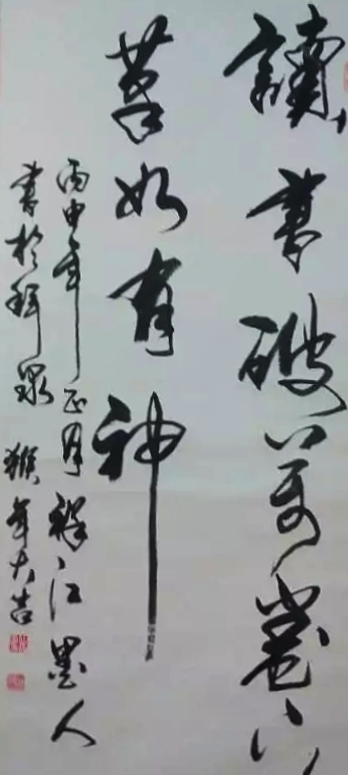 讀書破萬卷下
筆如有神
丙申年正月江墨人
書於拜泉 猴年大吉